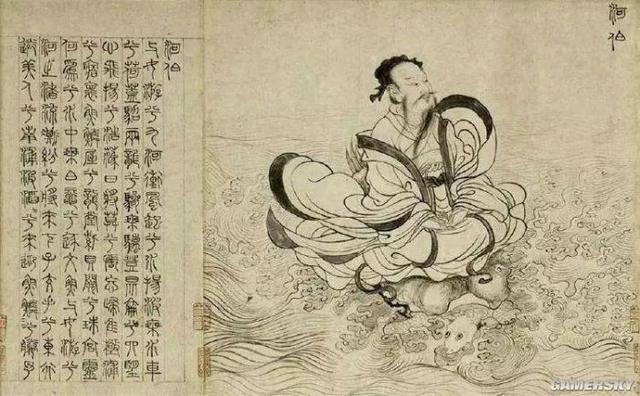 河伯
河伯
与女游兮九河衝風起兮水揚波乘水車
兮荷蓋駕兩龍兮驂螭登昆侖兮四望
心飛揚兮浩蕩日將莫兮悵忘歸惟極浦
兮寤懷魚鱗屋兮龍堂貝闕兮珠宮靈
何為兮水中乘白黿兮逐文魚与女游兮
河之渚流澌紛兮將來下子交手兮東行
送美人兮南浦波滔兮來迎魚鱗兮媵予
GAMERSKY